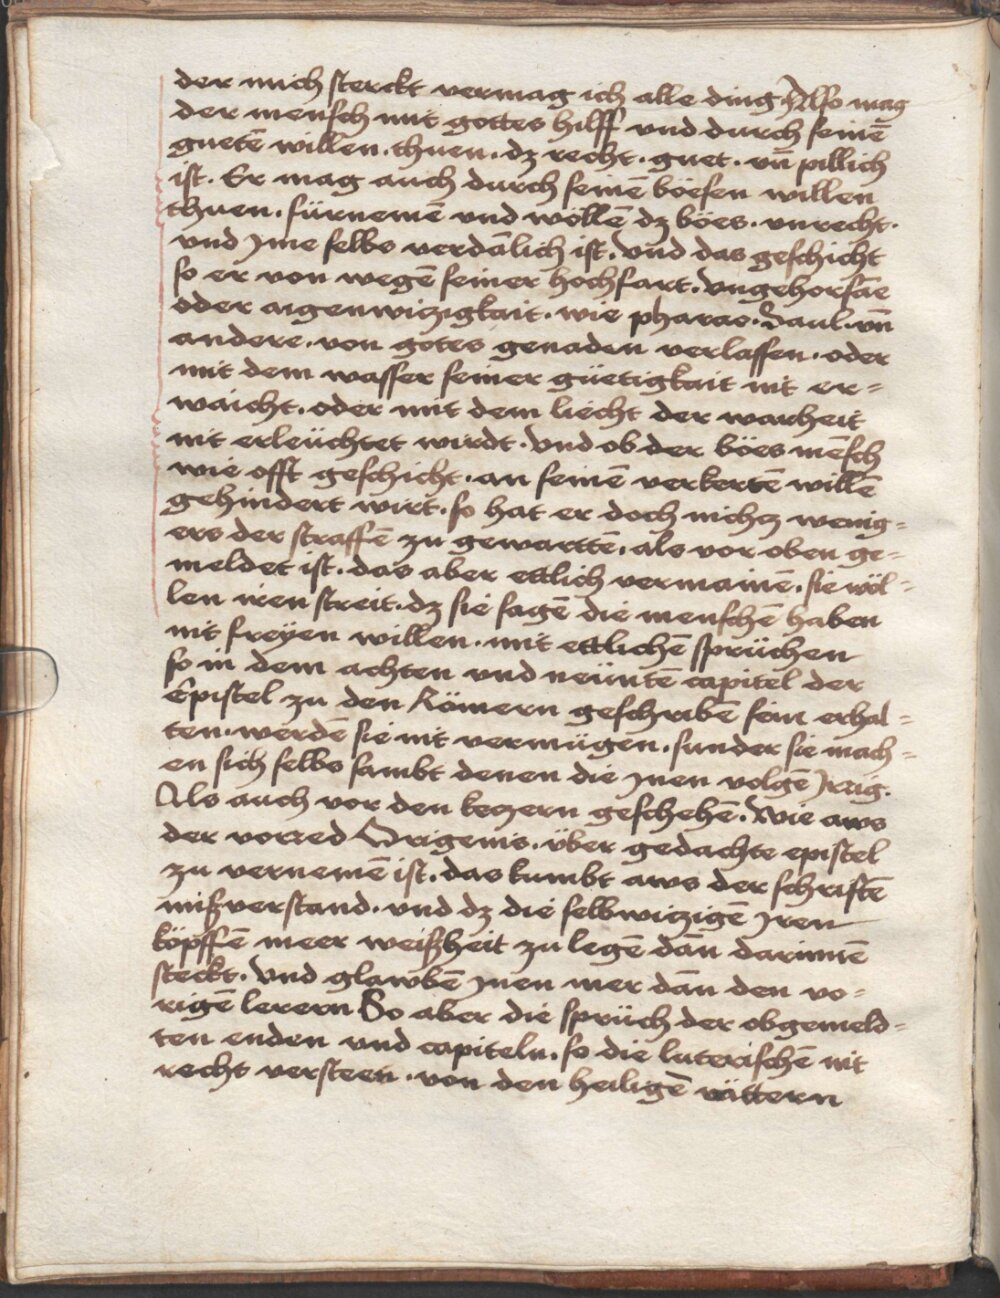 der mich sterckt vermag ich alle ding Also mag
der mensch mit gottes hilff und durch seinē
guetē willen. thuen. dz recht. guet. vn̄ pillich
ist. Er mag auch durch seinē böesen willen
thuen. fürnemē und wöllē dz böes. unrecht.
vnd jme selbs verdālich ist. Vnd das geschicht
so er von wegē seiner hochfart. Vngehorsāe
oder aigenwizigkait. wie pharao. Saul. vn̄
andere. von gotes genaden verlassen. oder
mit dem wasser seiner güetigkait nit er=
waicht. oder mit dem liecht der warheit
nit erleüchtet wirdt. Vnd ob der böes mēsch
wie offt geschicht. an seinē verkertē willē
gehindert wirt. so hat er doch nichz wenig=
ers der straffē zu gewarttē. als vor oben ge=
meldet ist. das aber ettlich vermainē. sie wöl=
len iren streit. dz sie sagē die menschē haben
nit freyen willen. mit ettlichē sprüchen
so in dem achten und neüntē capitel der
Epistel zu den Römern geschribē sein erhal=
ten. werdē sie nit vermügen. sunder sie mach=
en sich selbs sambt denen die jnen volgē Jrrig.
Als auch vor den kezern geschehē. Wie aws
der vorred Origenis. über gedachte epistel
zu vernemē ist. das kumbt aws der schriftē
mißverstand. vnd dz die selbwizigē jren
köpffē meer weißheit zu legē dān darinnē
steckt. Vnd glawbē jnen mer dān den vo=
rigē lerern So aber die sprüch der obgemeld=
ten enden und capiteln. so die luterischē nit
recht versteen. von den heiligē vättern